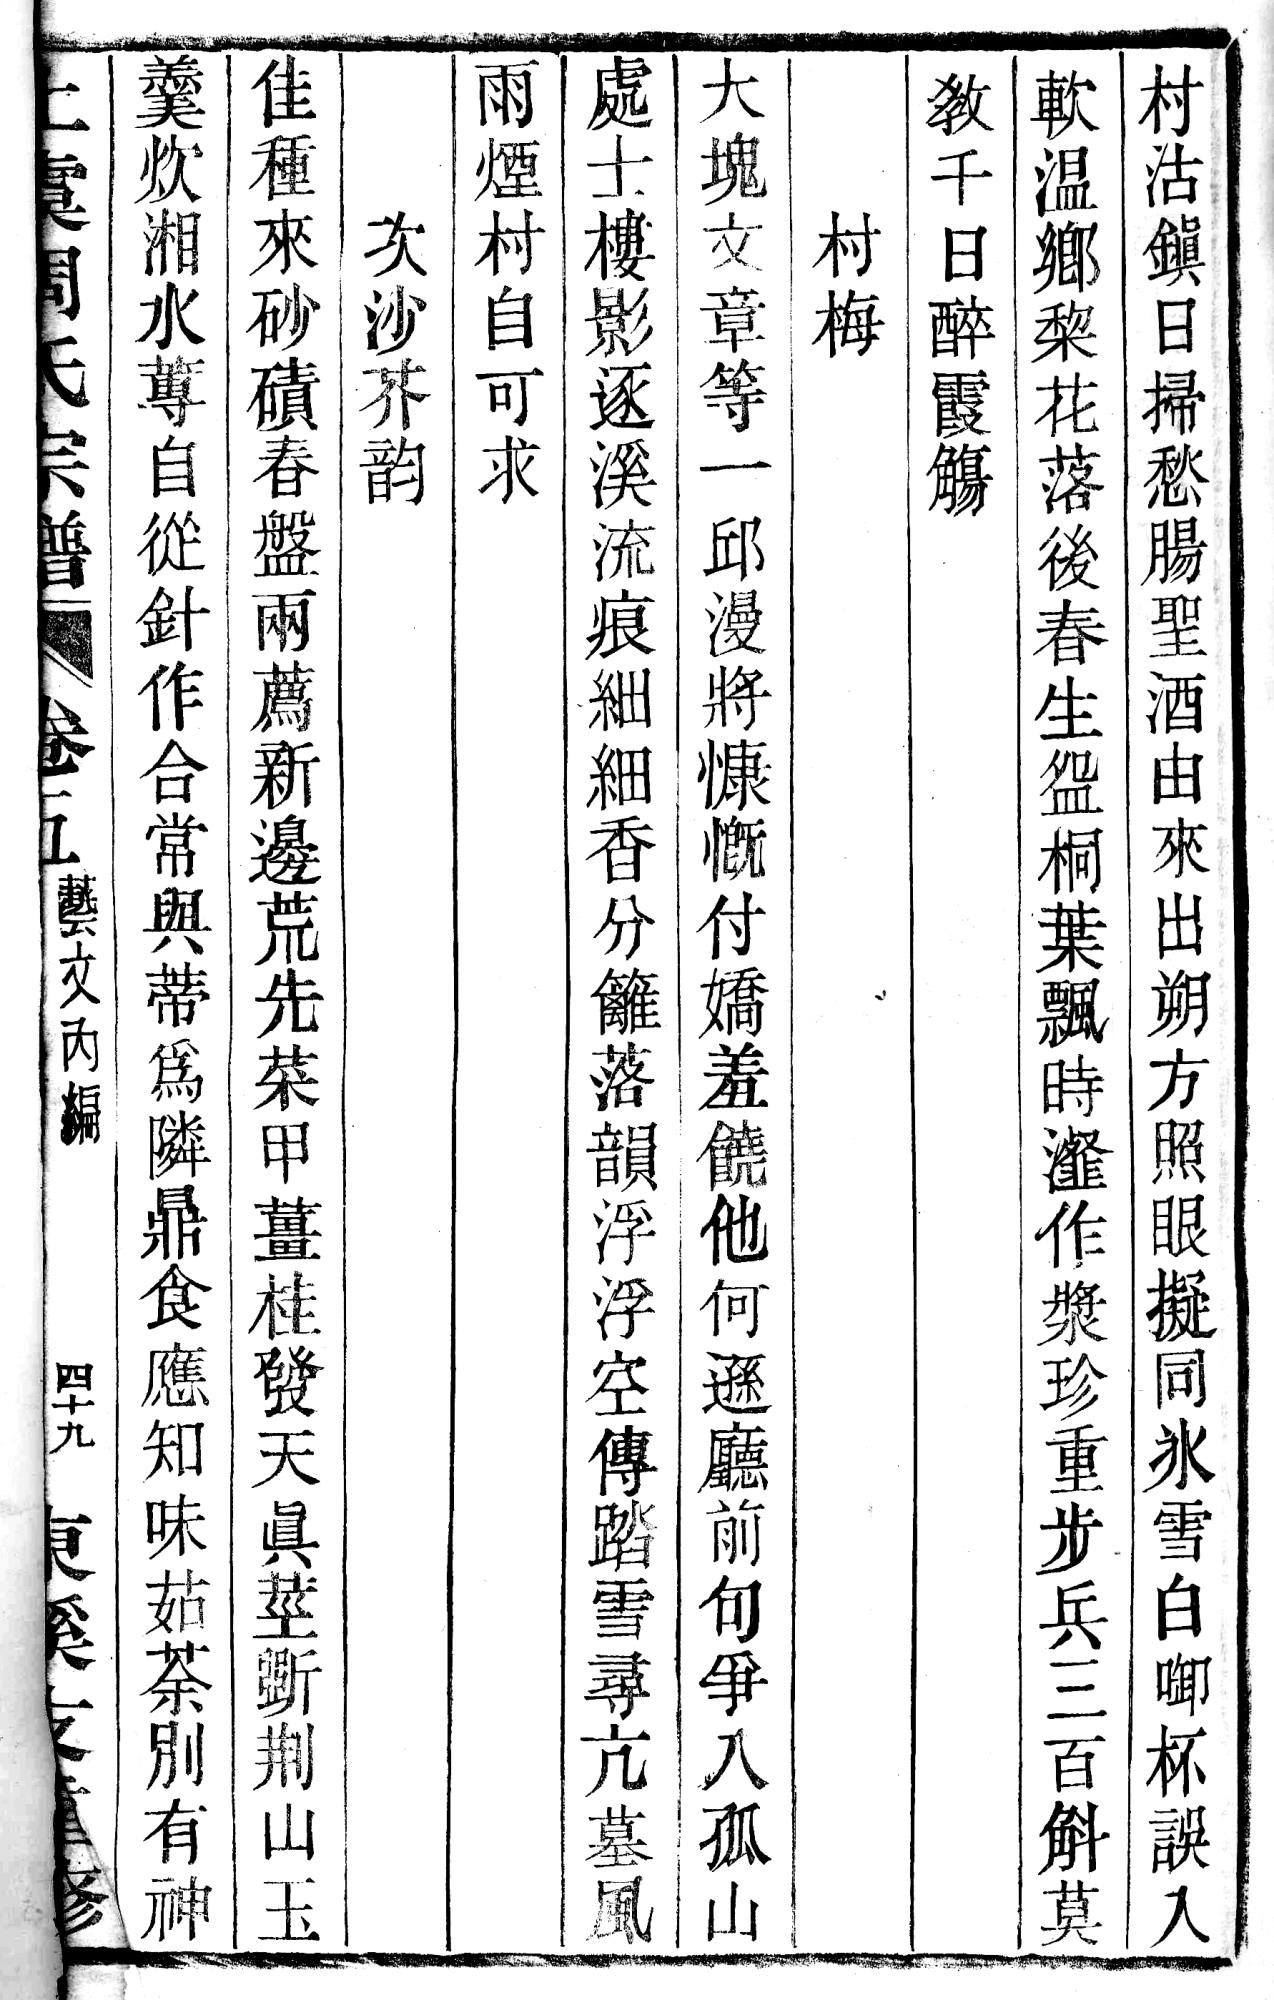 村沽鎭日掃愁腸聖酒由來出朔方照眼擬同氷雪白啣杯誤入
軟温鄉棃花落後春生盌桐葉飄時灩作漿珍重步兵三百斛莫
教千日醉霞觴
村梅
大塊文章等一邱漫將慷慨付嬌羞饒他何遜廳前句爭入孤山
處士樓影逐溪流痕細細香分籬落韻浮浮空傳踏雪尋亢墓風
雨煙村自可求
次沙芥韵
佳種來砂磧春盤兩薦新邊荒先菜甲薑桂發天眞莖斲荆山玉
羹炊湘水蓴自從針作合常與蒂爲隣鼎食應知味茹荼別有神
上虞周氏宗譜 卷五 藝文內編 四十九 東溪支重修